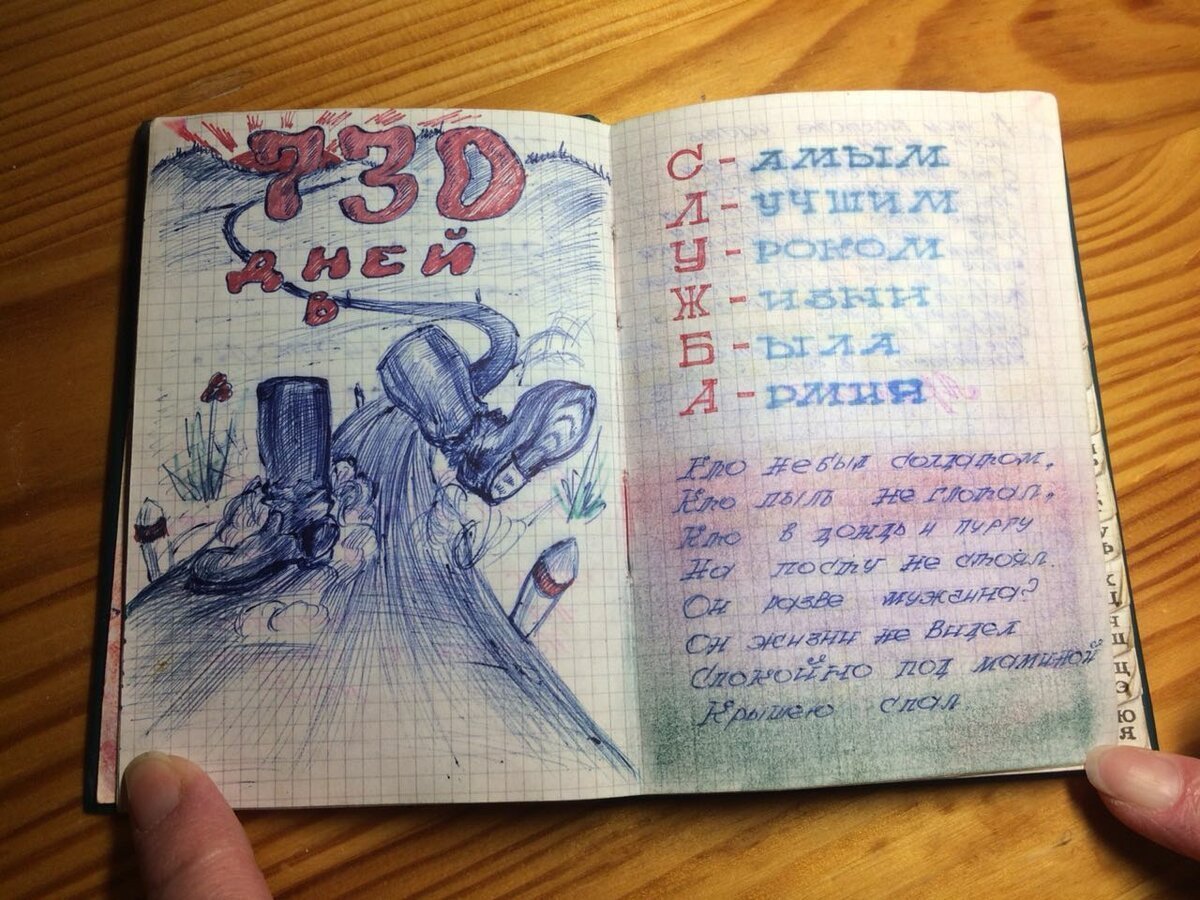 730
дней
в
С - АМЫМ
Л - УЧШИМ
У - РОКОМ
Ж - ИЗНИ
Б - ЫЛА
А - РМИЯ
Кто не был солдатом,
Кто пыль не глотал,
Кто в дождь и пургу
На посту не стоял.
Он разве мужчина?
Он жизни не видел
Спокойно под маминой
Крышею спал.
Щ
Ц
Э
Ю
Я